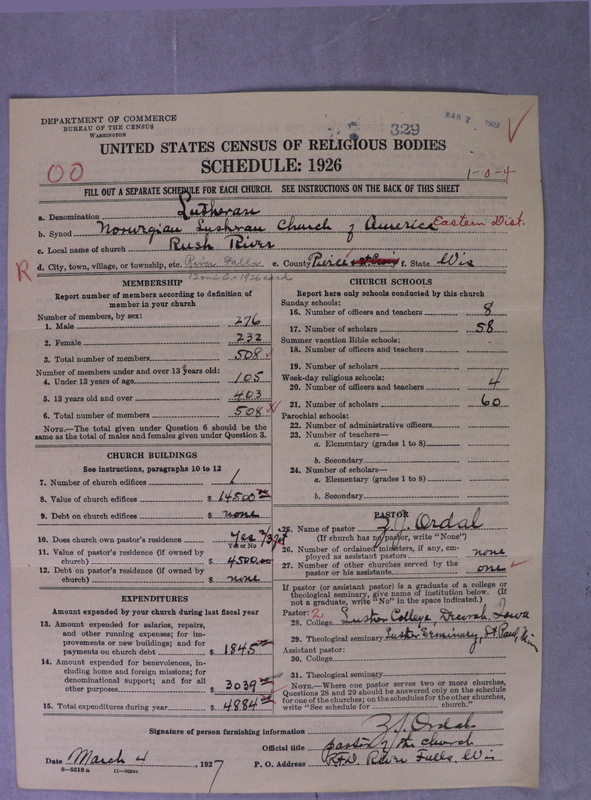 DEPARTMENT OF COMMERCE
BUREAU OF THE CENSUS
WASHINGTON
329
MAR 7 1927
UNITED STATES CENSUS OF RELIGIOUS BODIES
SCHEDULE: 1926
OO
1-0-4
FILL OUT A SEPARATE SCHEDULE FOR EACH CHURCH. SEE INSTRUCTIONS ON THE BACK OF THIS SHEET
a. Denomination Lutheran
b. Synod Norwegian Lutheran Church of America Eastern Dist.
c. Local name of church Rush River
R
d. City, town, village, or township, etc. River Falls e. County Pierce f. State Wis
MEMBERSHIP
Report number of members according to definition of member in your church
Number of members, by sex:
1. Male 276
2. Female 232
3. Total number of members 508
Number of members under and over 13 years old:
4. Under 13 years of age 105
5. 13 years old and over 403
6. Total number of members 508
NOTE.—The total given under Question 6 should be the
same as the total of males and females given under Question 3.
CHURCH BUILDINGS
See instructions, paragraphs 10 to 12
7. Number of church edifices 1
8. Value of church edifices $ 14500.00
9. Debt on church edifices $ none
10. Does church own pastor's residence? Yes 2/3 pt
Yes or No
11. Value of pastor's residence (if owned by
church) $ 4500.00
12. Debt on pastor's residence (if owned by
church) $ none
EXPENDITURES
Amount expended by your church during last fiscal year
13. Amount expended for salaries, repairs,
and other running expenses; for im-
provements or new buildings; and for
payments on church debt $ 1845.00
14. Amount expended for benevolences, in-
cluding home and foreign missions; for
denominational support; and for all
other purposes $ 3039.00
15. Total expenditures during year $ 4884.00
CHURCH SCHOOLS
Report here only schools conducted by this church
Sunday schools:
16. Number of officers and teachers 8
17. Number of scholars 58
Summer vacation Bible schools:
18. Number of officers and teachers
19. Number of scholars
Week-day religious schools:
20. Number of officers and teachers 4
21. Number of scholars 60
Parochial schools:
22. Number of administrative officers
23. Number of teachers—
a. Elementary (grades 1 to 8)
b. Secondary
24. Number of scholars—
a. Elementary (grades 1 to 8)
b. Secondary
PASTOR
25. Name of pastor Z. J. Ordal
(If church has no pastor, write "None")
26. Number of ordained ministers, if any, em-
ployed as assistant pastors none
27. Number of other churches served by the
pastor or his assistants one
If pastor (or assistant pastor) is a graduate of a college or
theological seminary, give name of institution below. (If
not a graduate, write "No" in the space indicated.)
Pastor: 2
28. College Luther College, Decorah, Iowa
29. Theological seminary Luther Seminary, St Paul, Min
Assistant pastor:
30. College
31. Theological seminary
NOTE.—Where one pastor serves two or more churches,
Questions 28 and 29 should be answered only on the schedule
for one of the churches; on the schedules for the other churches,
write "See schedule for church."
Signature of person furnishing information Z. J. Ordal
Official title pastor of the church
Date March 4, 1927 P. O. Address RFD. River Falls, Wis
8-5518a 11-9054